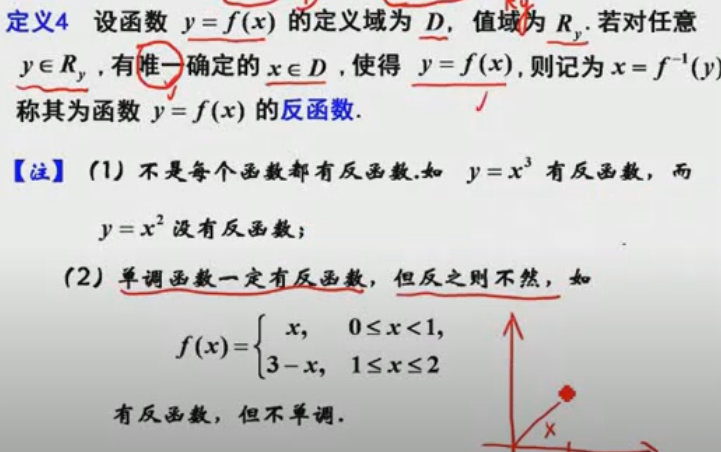 Ry
定义4 设函数 y = f(x) 的定义域为 D, 值域为 R_y. 若对任意
y ∈ R_y , 有唯一确定的 x ∈ D , 使得 y = f(x), 则记为 x = f⁻¹(y)
称其为函数 y = f(x) 的反函数.
【注】(1) 不是每个函数都有反函数.如 y = x³ 有反函数, 而
y = x² 没有反函数;
(2) 单调函数一定有反函数, 但反之则不然, 如
f(x) = { x, 0 ≤ x < 1,
3 − x, 1 ≤ x ≤ 2
有反函数, 但不单调.
x